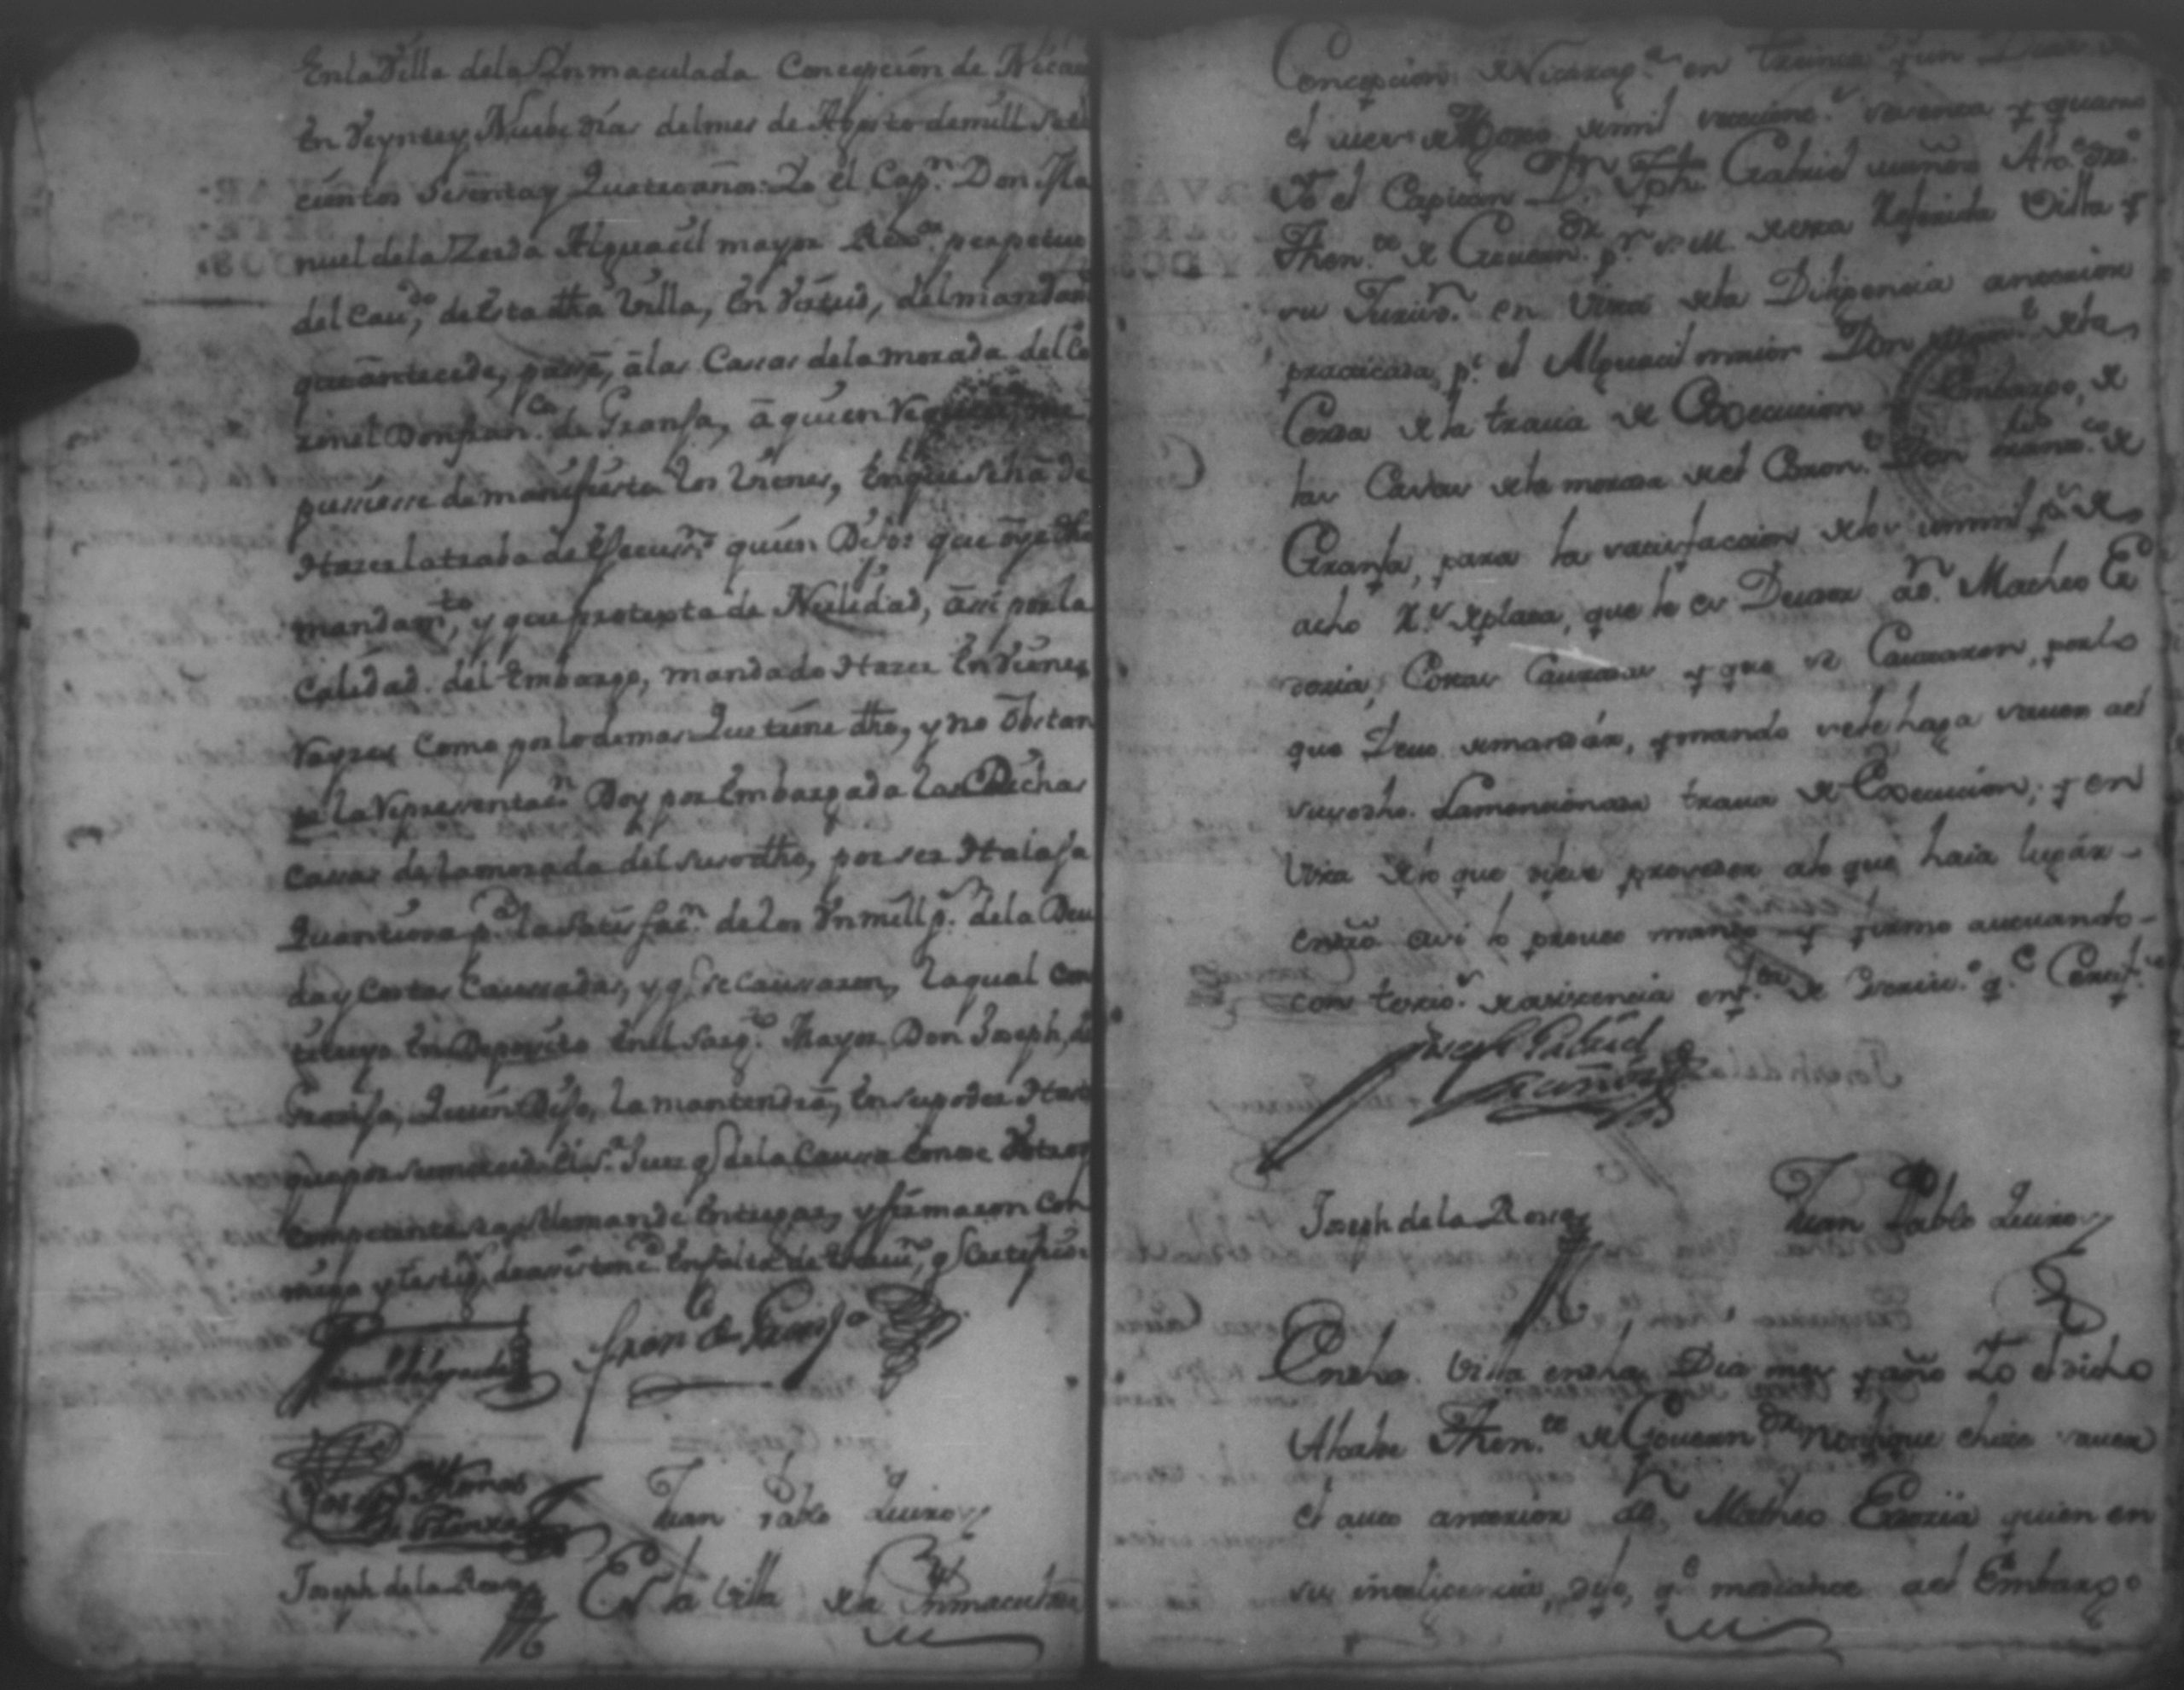 En la Villa dela Ynmaculada Concepción de Nicara
En Veynte y Nuebe días del mes de Agosto de mill sete
cientos sesenta y Quatro años: Yo el Cap.n Don Ma
nuel dela Zerda Alguacil mayor Rex.or perpetuo
del Cau.do de Esta dha Villa, En Virtud, del mandam
que antecede, passé, á las Cassas dela morada del Co
ronel Don fran.co de Granja, á quien
pusiesse de manifiesto los Vienes, En que se há de
Hazer la traba de Execus.n quien Dijo: que oye dho
mandam.to, y que protexta de Nulidad, ási por la
Calidad del Embargo, mandado Hazer En Vienes
Rayzes Como por lo demas Que tiene dho, y no Obstan
te la Representac.n Doy por Embargada las Dichas
cassas de la morada del susodho, por ser Halaja
Quantiosa p.a la Satisfac.n delos Un mill p.s dela Deu
da y Costas Caussadas, y q.e se Caussaren, la qual Con
tituyo En Deposito En el Sarg.to Mayor Don Joseph, de
Granja, Quien Dijo, la mantendrá, En su poder Hasta
que por su merced el Sr. Juez q.e de la Caussa Conose U otro
Competente se le mande Entregar, y firmaron Con
migo y testig.s de asistenc.a En falta de Escriu.no, q.e Certifico:
fran.co de Granja
Joseph Thomas
Juan Pablo Quiros
Joseph dela Rossa
En la Villa de la Ynmaculada
Concepcion de Nicarag.a en treinta y un Dias de
el mes de Agosto de mil setecient.s sesenta y quatro
Yo el Capitan D.n Jph. Gabriel muñoz Alc.e ord.o
Then.te de Gouern.or p.r S. M. de esta Referida Villa y
su Jurisd.n en Vista de la Diligencia anterior
practicada, p.r el Alguacil maior Don man.l de la
Cerda de la traua de Execucion y Embargo, de
las Casas de la morada del Coron.l Don Franc.co de
Granja, para la satisfaccion de los un mil p.s de
a cho R.s de plata, que le es Deudor a D.n Matheo E
, Costas Causadas y que se Causaren, por lo
que Deuo de mandár, y mando se le haga sauer al
susodho. La mencionada traua de Execucion, y en
Vista de lo que diere proveder a lo que haia lugár
 asi lo proueo mando y firmo actuando
con testig.s de asistencia en f.ta de Escriu.o q.e Certif.co
Joseph Gabriel
Muñoz
Joseph dela Rossa
Juan Pablo Quiros
En dha. Villa en dho Dia mes y año Yo el dicho
Alcalde Then.te de Gouern.or Notifique e hise sauer
el auto anterior a D.n Matheo quien en
su inteligencia, dijo, q.e mediante a el Embargo